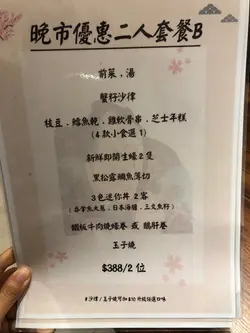 晚市優惠二人套餐B
前菜，湯
蟹籽沙律
枝豆．鱈魚乾．雞軟骨串．芝士年糕
(4款小食選1)
新鮮即開生蠔2隻
黑松露鯛魚薄切
3色迷你丼 2客
日本海膽．三文魚籽)
鐵板牛肉燒蠔卷 或 鵝肝卷
玉子燒
$388/2位
#沙律/玉子燒可加$10升級